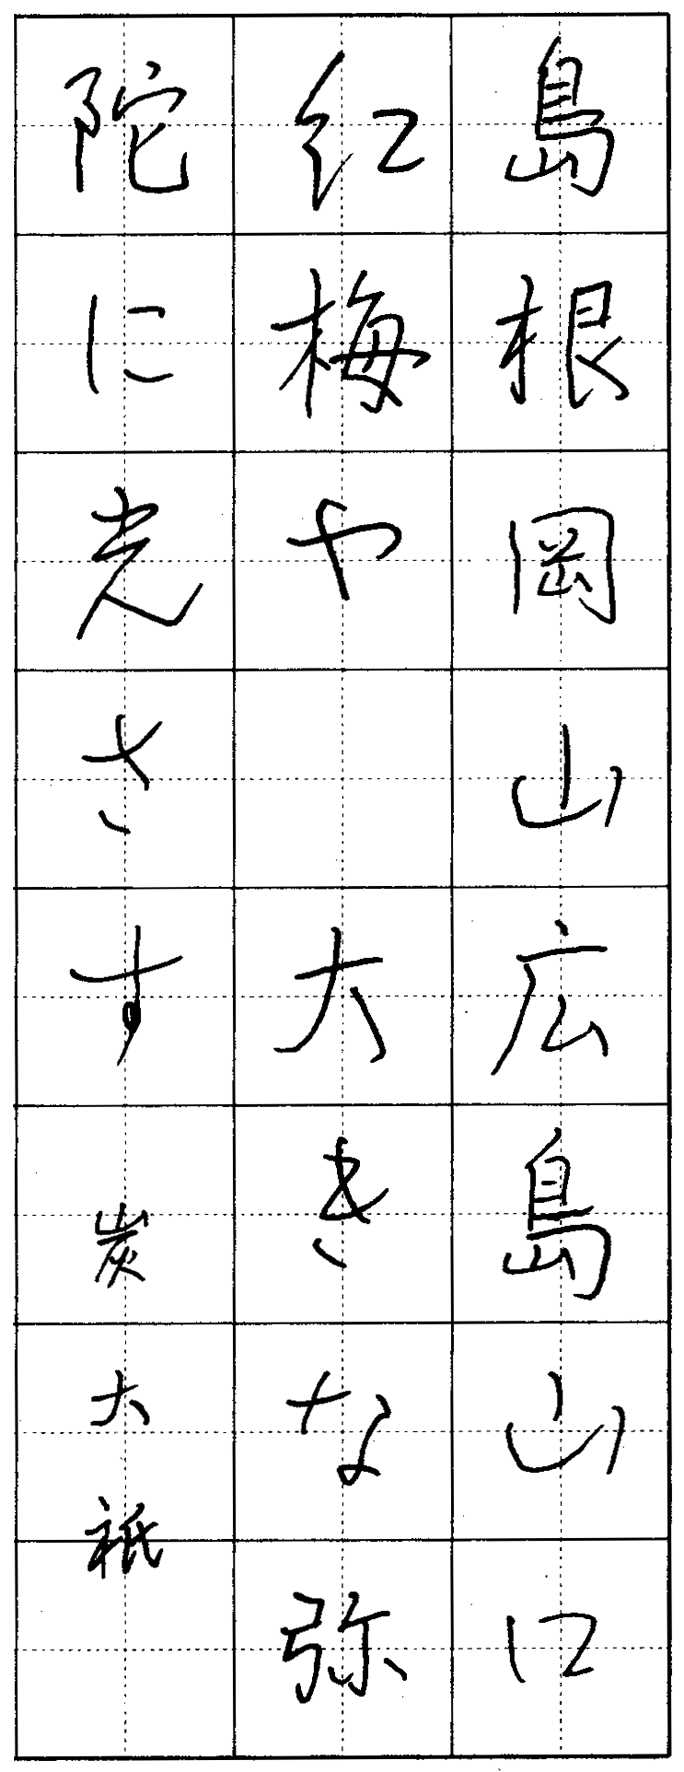 島根岡山広島山口
紅梅や 大きな弥
陀に光さす 炭太祇